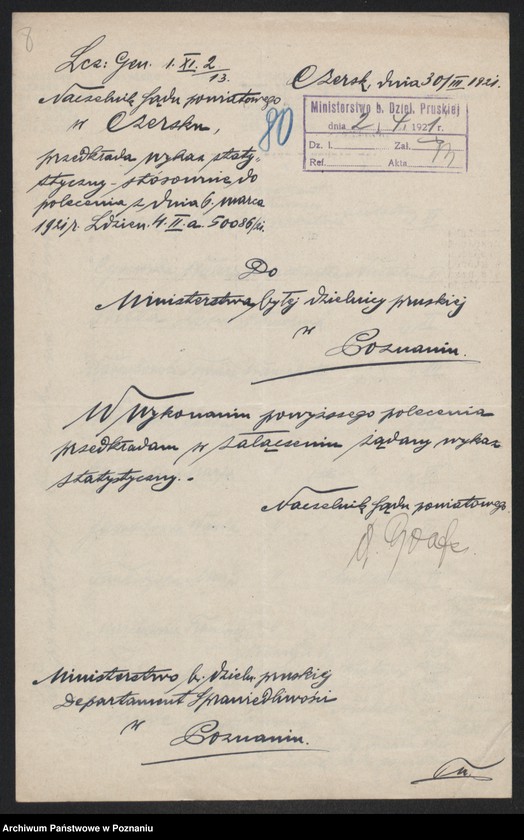 8
Lcz: Gen. 1. XI. 2
13.
Czersk, dnia 30/III 1921.
Naczelnik sądu powiatowego
w Czersku,
przedkłada wykaz staty-
styczny stósownie do
polecenia z dnia 6. marca
1921 r. Ldzien. 4. II. a. 50086/21.
80
Ministerstwo b. Dziel. Pruskiej
dnia 2. 4. 1921 r.
Dz. l. Zał.
Ref. Akta
Do
Ministerstwa byłej dzielnicy pruskiej
w
Poznaniu.
W wykonaniu powyższego polecenia
przedkładam w załączeniu żądany wykaz
statystyczny.
Naczelnik sądu powiatowego.
Ministerstwo b. dzieln. pruskiej
Departament Sprawiedliwości
w
Poznaniu.
Archiwum Państwowe w Poznaniu